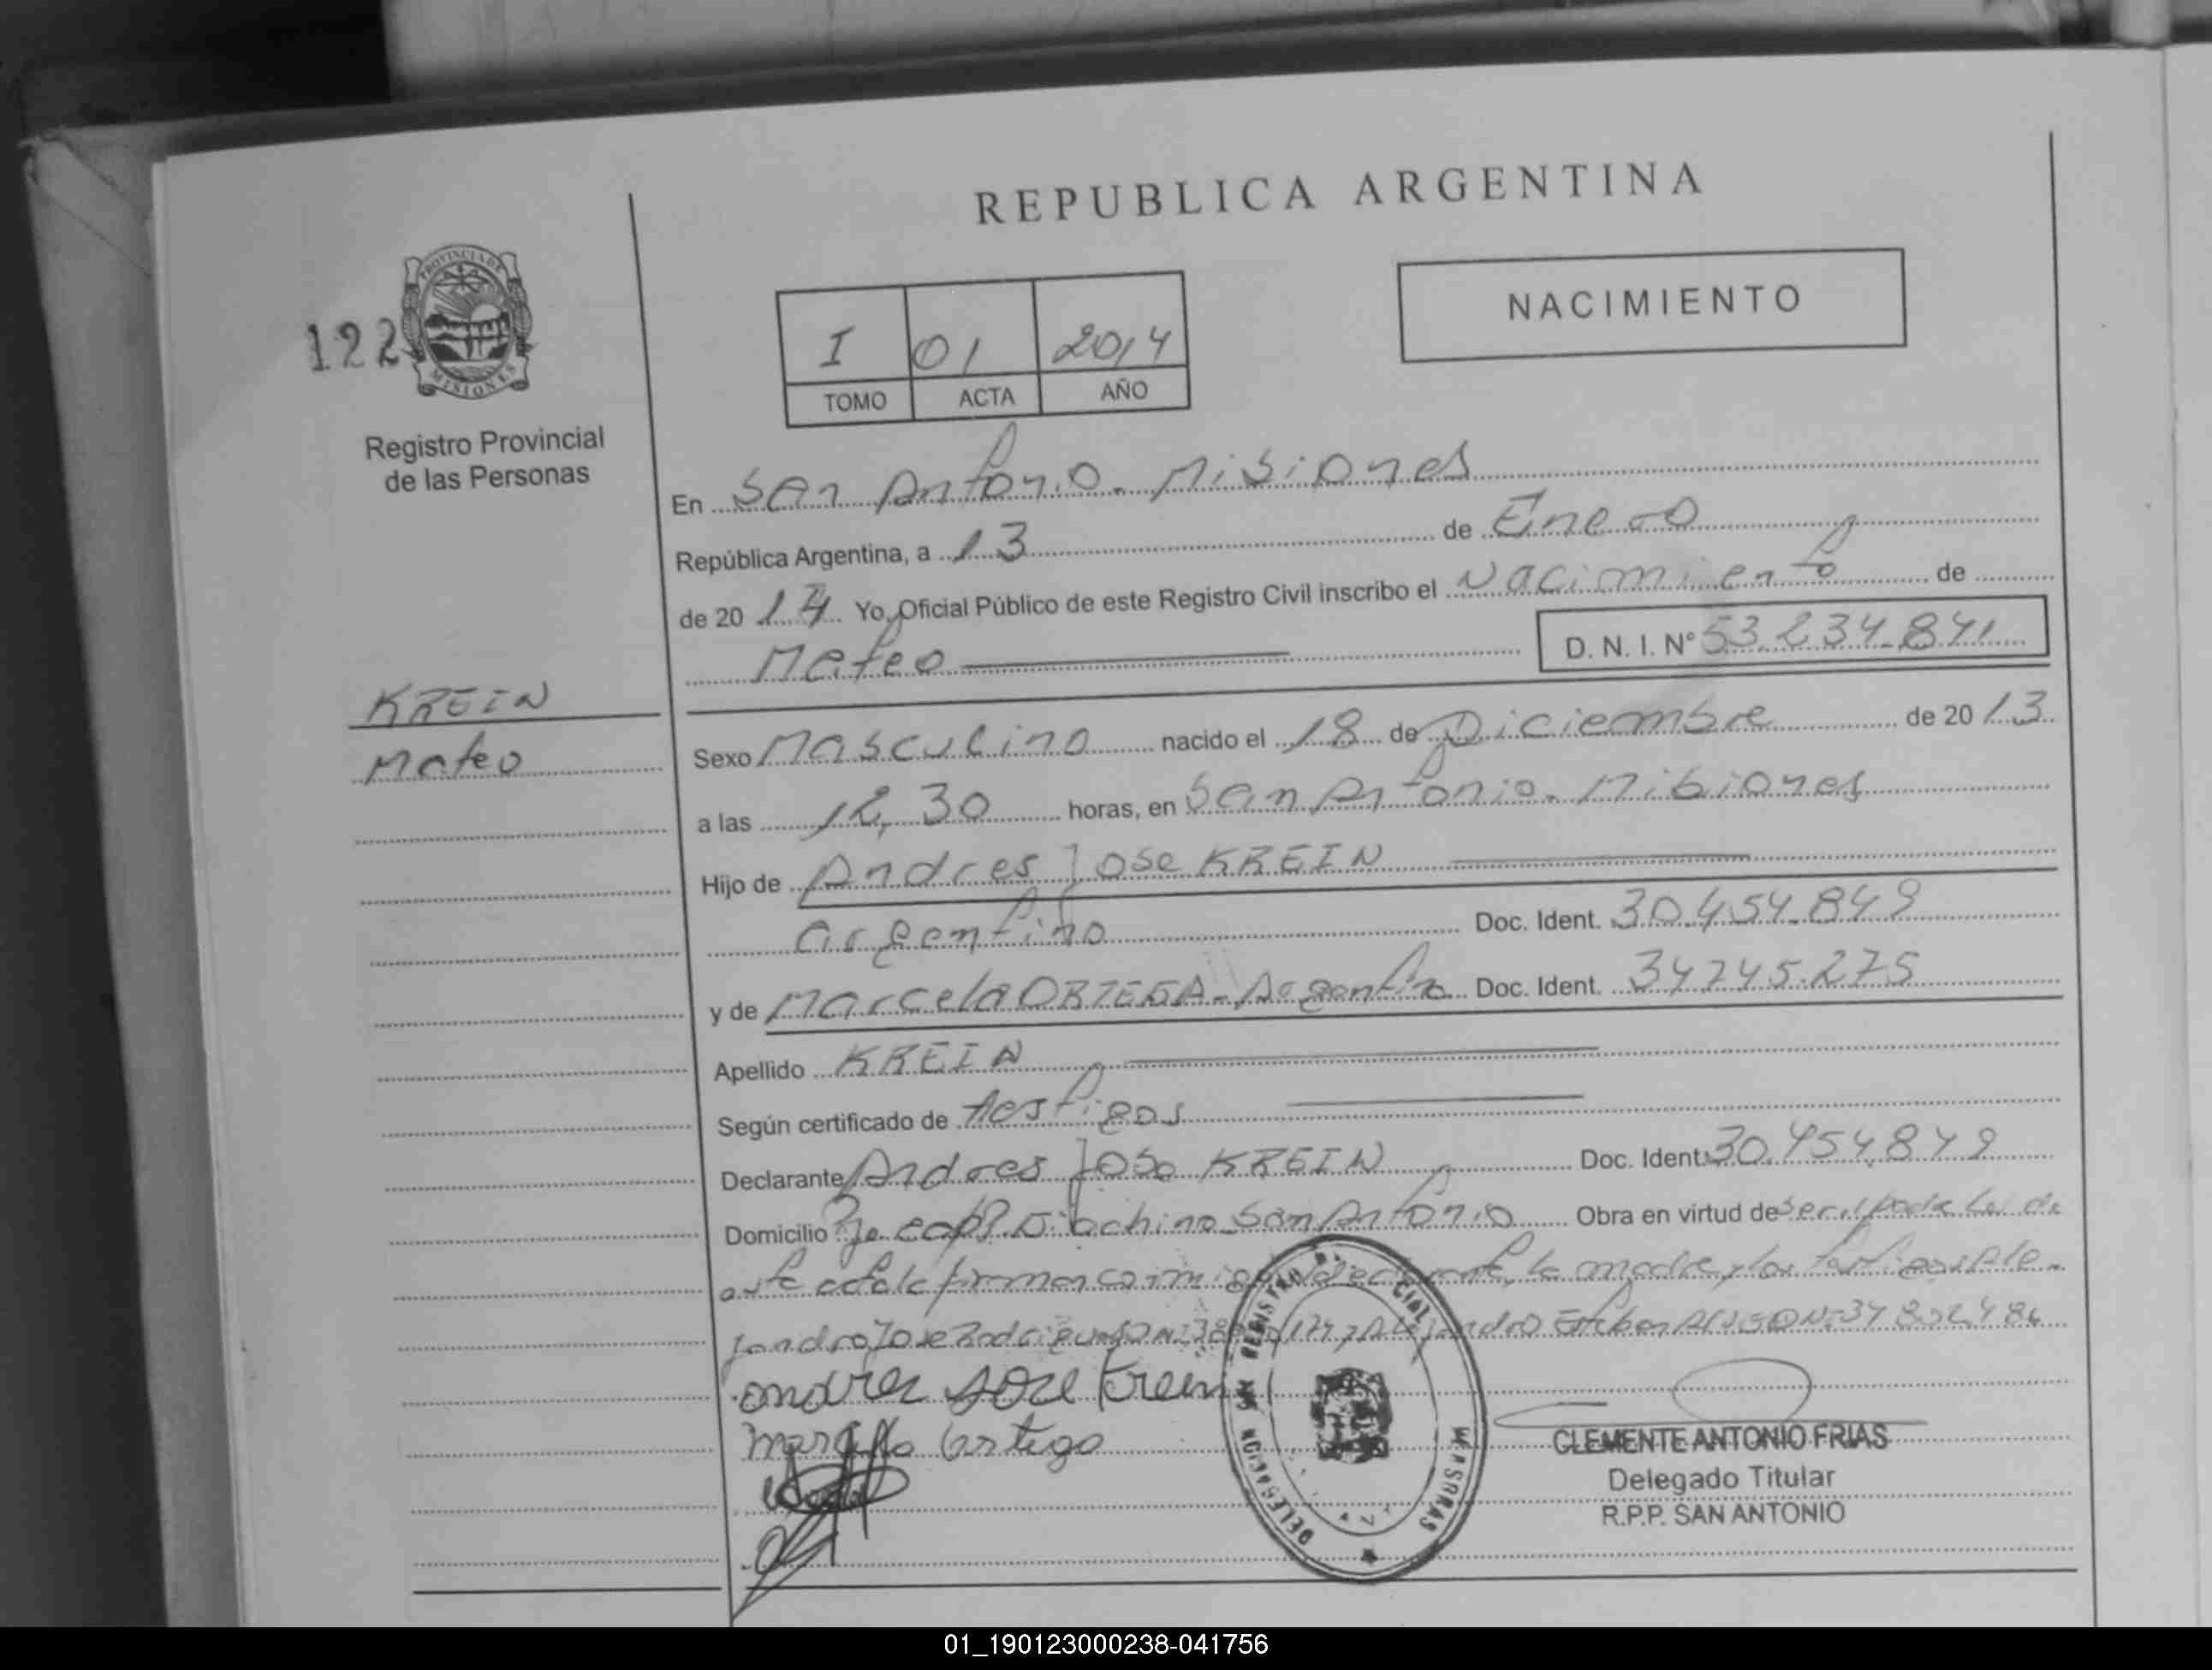 REPUBLICA ARGENTINA
NACIMIENTO
I 01 2014
TOMO ACTA AÑO
122
PROVINCIA DE
MISIONES
Registro Provincial
de las Personas
En San Antonio. Misiones
República Argentina, a 13 de Enero
de 20 14 Yo, Oficial Público de este Registro Civil inscribo el Nacimiento de
Mateo D. N. I. Nº 53.234.841
KREIN
Mateo
Sexo Masculino nacido el 18 de Diciembre de 20 13
a las 12,30 horas, en San Antonio. Misiones
Hijo de Andres Jose KREIN
argentino Doc. Ident. 30.454.849
y de Marcela ORTEGA - Argentina Doc. Ident. 34745.275
Apellido KREIN
Según certificado de testigos
Declarante Andres Jose KREIN Doc. Ident. 30.454.849
Domicilio San Antonio Obra en virtud de ser el padre Lei da
este acta la firman conmigo el declarante, la madre y los testigos Ale-
jandro Jose y Alejandro Esteban
andres jose Krein
DELEGACION SAN REGISTRO P. CIAL
CLEMENTE ANTONIO FRIAS
Delegado Titular
R.P.P. SAN ANTONIO
01_190123000238-041756